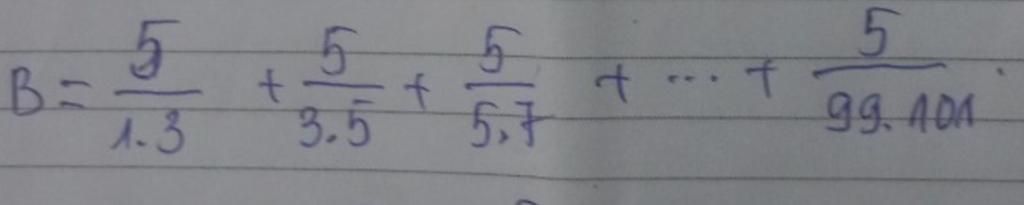 B = 5/1.3 + 5/3.5 + 5/5.7 + ... + 5/99.101